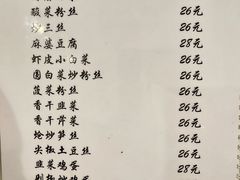 酸菜粉丝 26元
炒三丝 26元
麻婆豆腐 28元
虾皮小白菜 26元
圆白菜炒粉丝 26元
菠菜粉丝 26元
香干韭菜 26元
香干芹菜 26元
炝炒笋丝 26元
尖椒土豆丝 26元
韭菜鸡蛋 28元